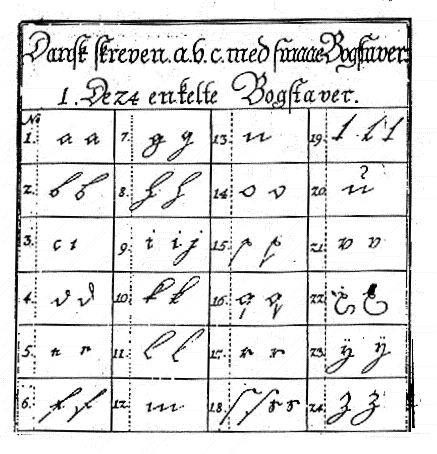 Dansk skreven. a. b. c. med smaae Bogstaver.
1. De 24 enkelte Bogstaver.
No
1. a a 7. g g 13. n 19. t t t
2. b b 8. h h 14. o o 20. u
3. c c 9. i i j 15. p p 21. v v
4. d d 10. k k 16. q q 22. x x
5. e e 11. l l 17. r r 23. ÿ ÿ
6. f f 12. m 18. ſ ſ s s 24. z z